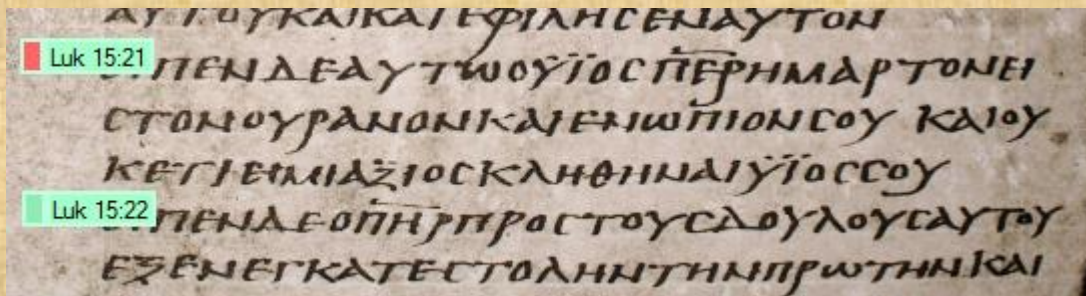 ΑΥΤΟΥΚΑΙΚΑΤΕΦΙΛΗСΕΝΑΥΤΟΝ
Luk 15:21
ΠΕΝΔΕΑΥΤΩΟΥΪΟСΠΕΡΗΜΑΡΤΟΝΕΙ
СΤΟΝΟΥΡΑΝΟΝΚΑΙΕΝΩΠΙΟΝСΟΥ ΚΑΙΟΥ
ΚΕΤΙΕΙΜΙΑΞΙΟСΚΛΗΘΗΝΑΙΫΪΟССΟΥ
Luk 15:22
ΠΕΝΔΕΟΠΗΡΠΡΟСΤΟΥСΔΟΥΛΟΥСΑΥΤΟΥ
ΕΞΕΝΕΓΚΑΤΕСΤΟΛΗΝΤΗΝΠΡΩΤΗΝΚΑΙ